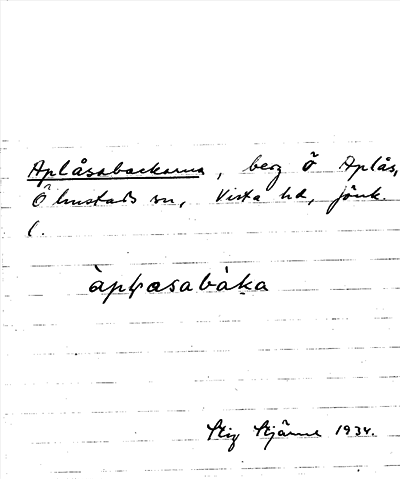 Aplåsabackarna, berg Ö Aplås,
Ölmstads sn, Vista hd, Jönk.
l.
àpɫåsabàka
Stig Stjärne 1934.